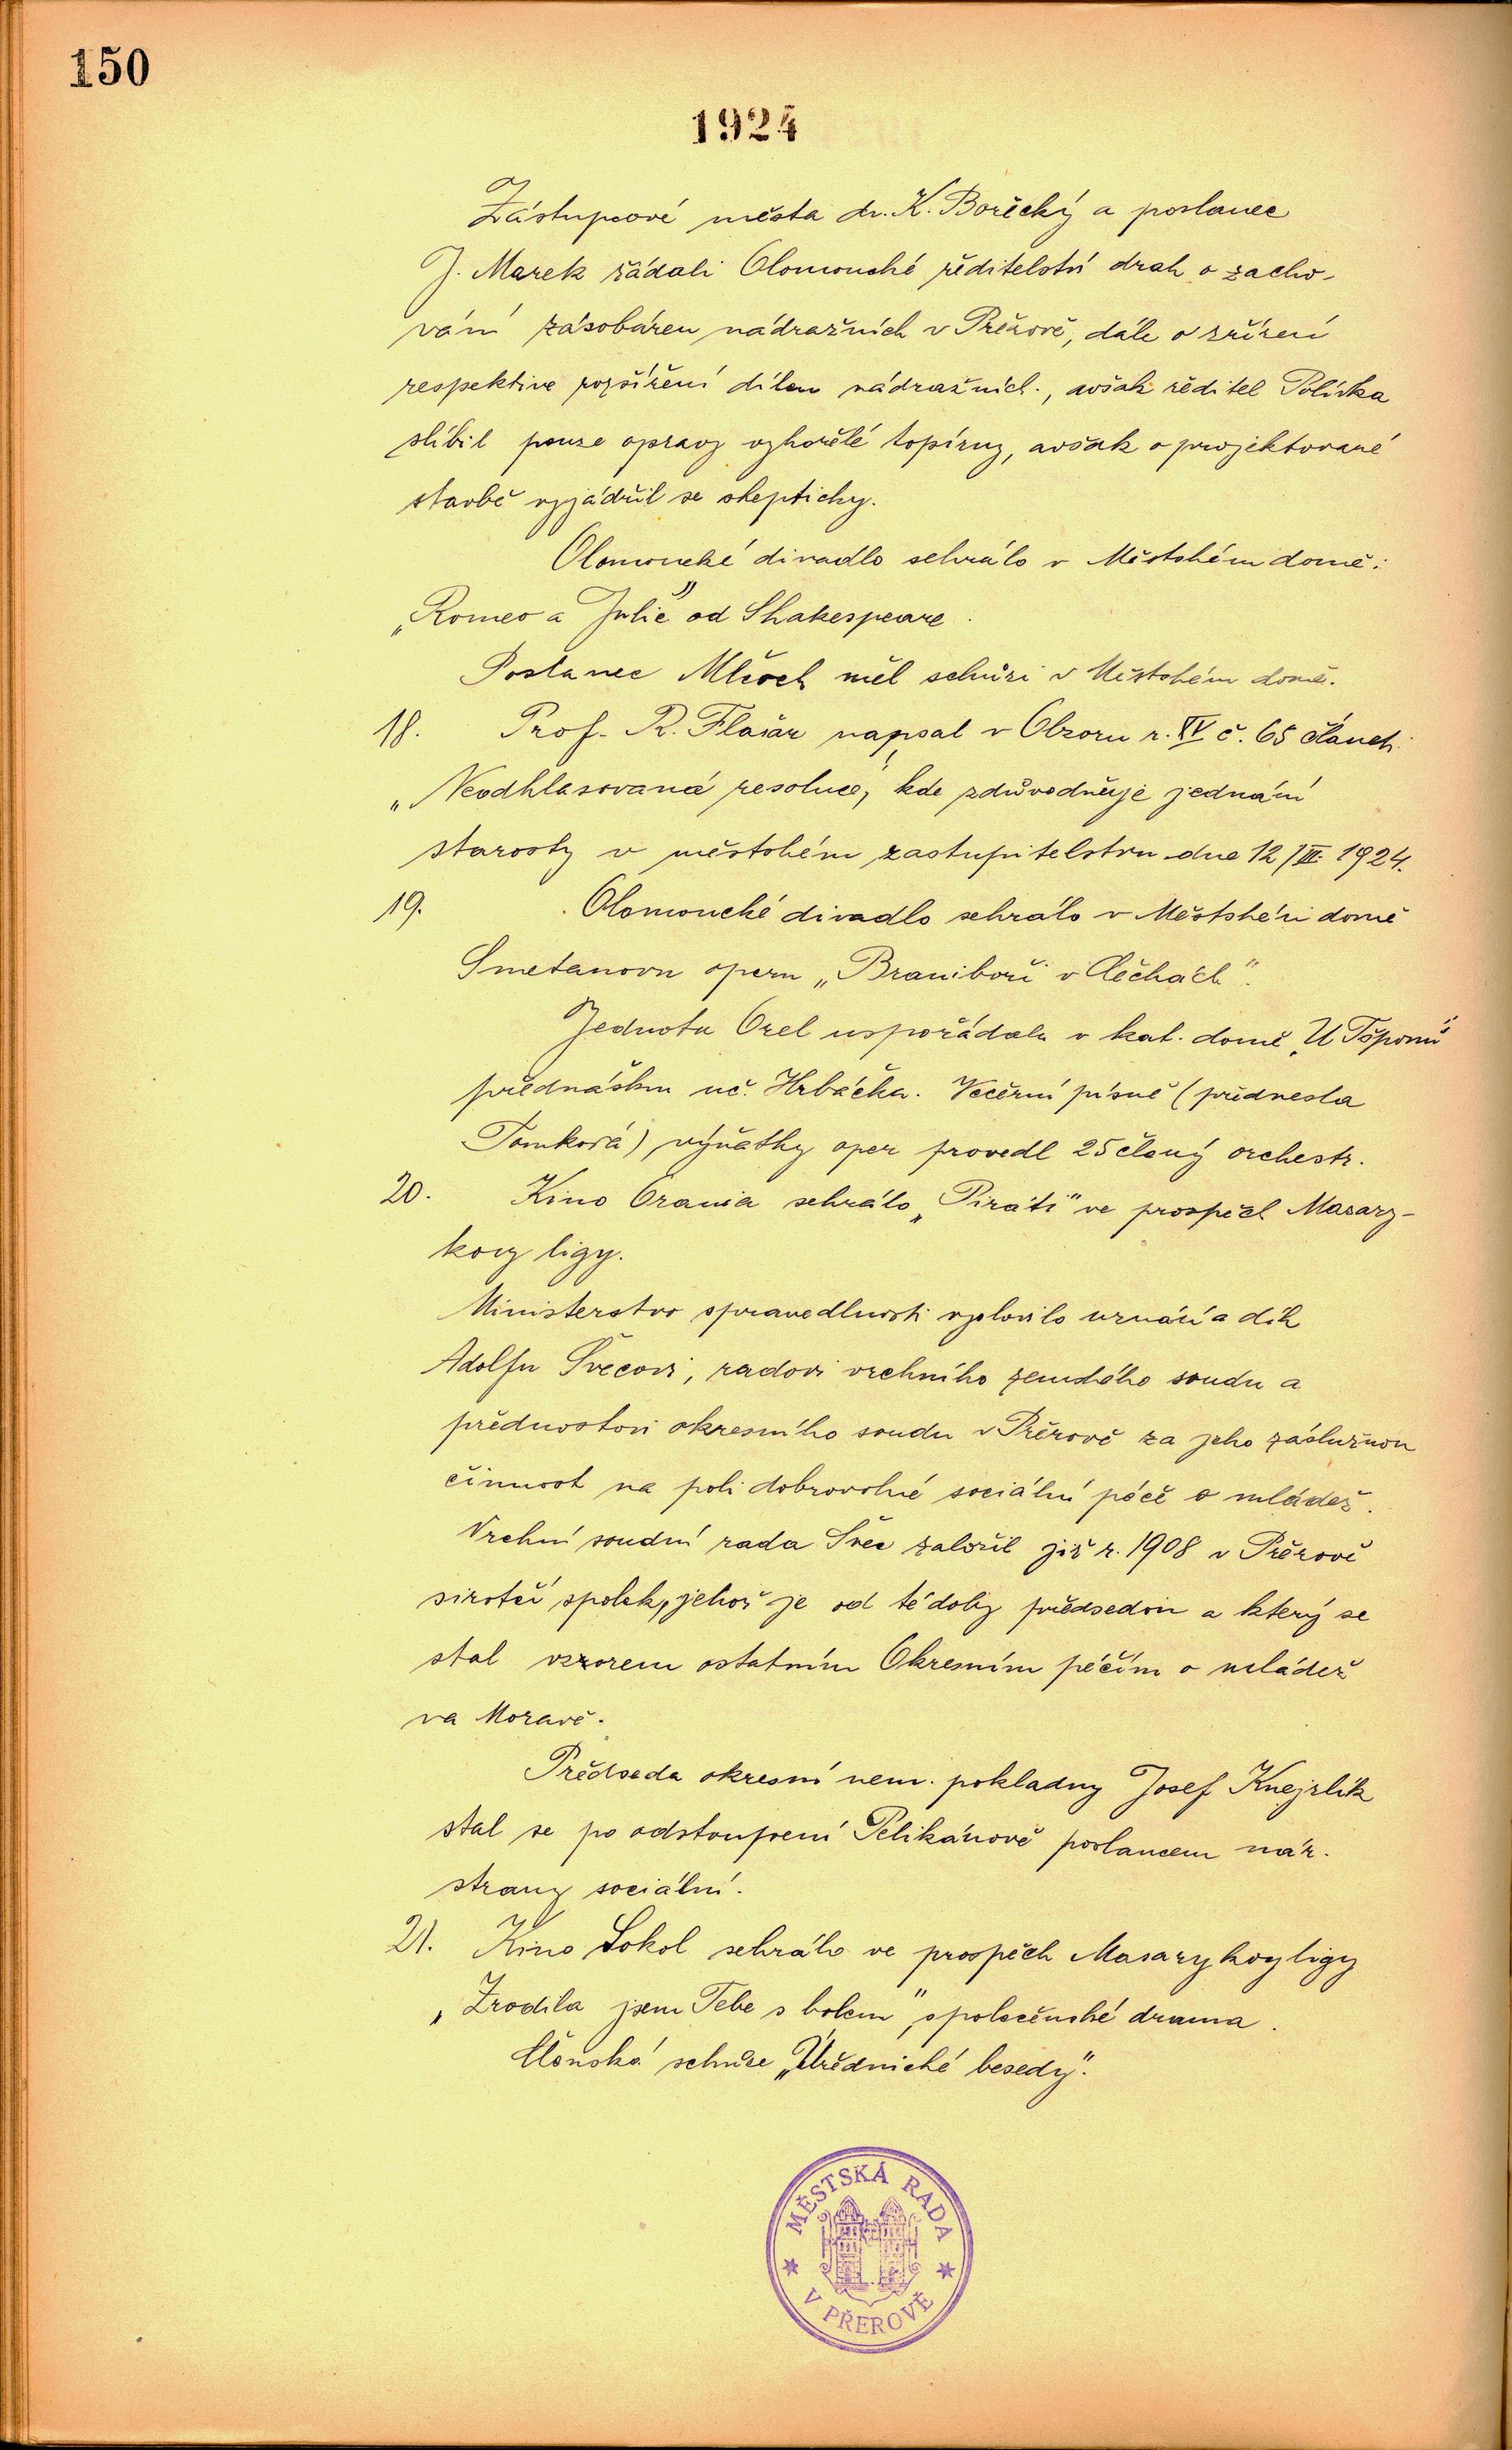 150
1924
Zástupcové města dr. K. Bořecký a poslanec
J. Marek žádali Olomoucké ředitelství drah o zacho-
vání zásobáren nádražních v Přerově, dále o zřízení
respektive rozšíření dílen nádražních., avšak ředitel Polívka
slíbil pouze opravy vyhořélé topírny, avšak o projektované
stavbě vyjádřil se skepticky.
Olomoucké divadlo sehrálo v Městském domě:
„Romeo a Julie" od Shakespeare.
Poslanec Mlčoch měl schůzi v Městském domě.
18. Prof. R. Flašar napsal v Obzoru r. XV č. 65 článek
„Neodhlasovaná resoluce", kde zdůvodňuje jednání
starosty v městském zastupitelstvu dne 12/III. 1924.
19. Olomoucké divadlo sehrálo v Městském domě
Smetanovu operu „Braniboři v Čechách".
Jednota Orel uspořádala v kat. domě „U Tšponů"
přednášku uč. Hrbáčka. Večerní písně (přednesla
Tomková) výňatky oper provedl 25člený orchestr.
20. Kino Orania sehrálo „Piráti" ve prospěch Masary-
kovy ligy.
Ministerstvo spravedlnosti vyslovilo uznání a dík
Adolfu Švecovi, radovi vrchního zemského soudu a
přednostovi okresního soudu v Přerově za jeho záslužnou
činnost na poli dobrovolné sociální péče o mládež.
Vrchní soudní rada Švec založil již r. 1908 v Přerově
sirotčí spolek, jehož je od té doby předsedou a který se
stal vzorem ostatním Okresním péčím o mládež
na Moravě.
Předseda okresní nem. pokladny Josef Knejzlík
stal se po odstoupení Pelikánově poslancem nár.
strany sociální.
21. Kino Sokol sehrálo ve prospěch Masarykovy ligy
„Zrodila jsem Tebe s bolem", společenské drama.
Členská schůze „Úřednické besedy".
MĚSTSKÁ RADA
V PŘEROVĚ